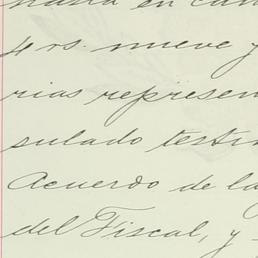 en
4 rs. nueve y
rias represen
sulado testi
Acuerdo de la
del Fiscal, y